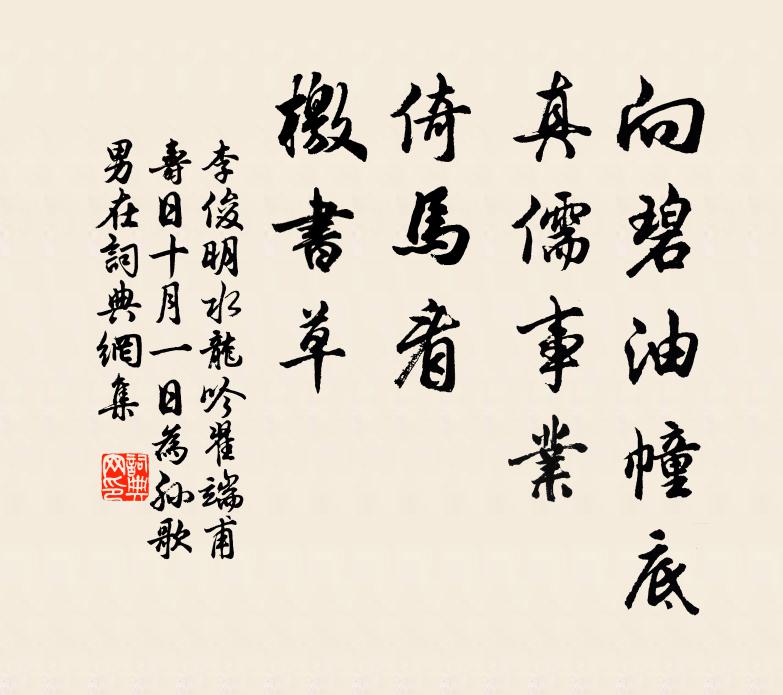 向碧油幢底
真儒事業
倚馬看
檄書草
李俊明水龍吟翟端甫
壽日十月一日為孫歌
男在詞典網集
詞典網印